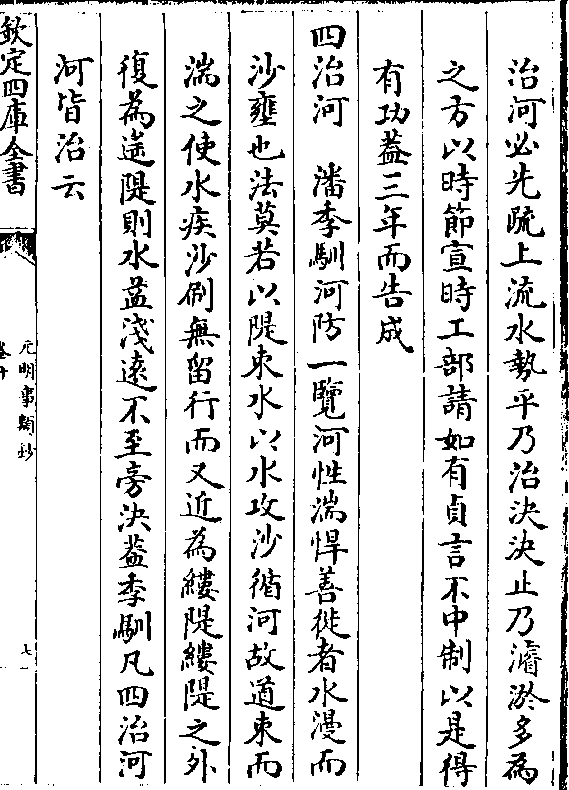 治河必先疏上流水勢平乃治決決止乃濬淤多為
之方以時節宣時工部請如有貞言不中制以是得
有功葢三年而告成
四治河　潘季馴河防一覽河性湍悍善徙者水漫而
沙壅也法莫若以隄束水以水攻沙循河故道束而
湍之使水疾沙刷無留行而又近為縷隄縷隄之外
復為遙隄則水益淺遠不至旁決葢季馴凡四治河
河皆治云
欽定四庫全書
元明事類鈔
七